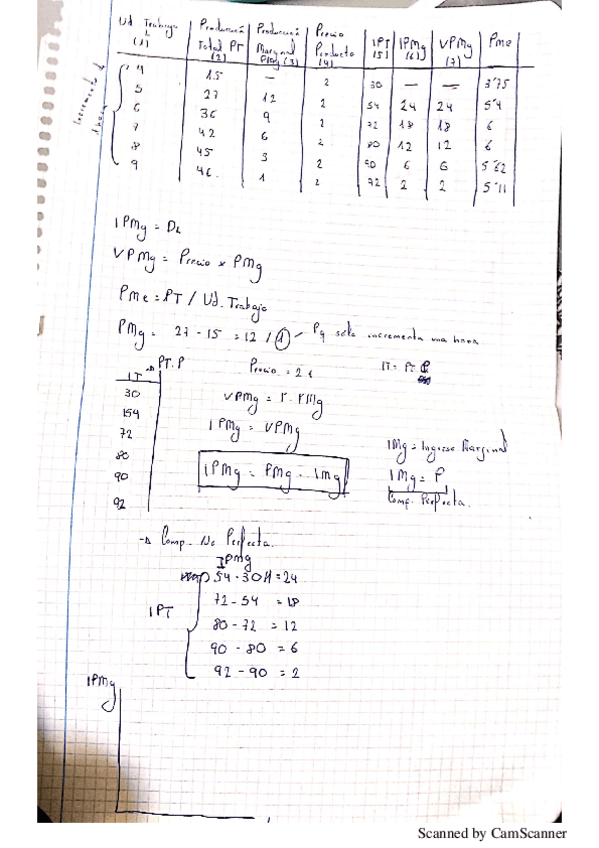 Ud Trabajo L (1) | Producción Total PT (2) | Producción Marginal PMg (3) | Precio Producto (4) | IPT (5) | IPMg (6) | VPMg (7) | Pme
4 | 15 | — | 2 | 30 | — | — | 3'75
5 | 27 | 12 | 2 | 54 | 24 | 24 | 5'4
6 | 36 | 9 | 2 | 72 | 18 | 18 | 6
7 | 42 | 6 | 2 | 80 | 12 | 12 | 6
8 | 45 | 3 | 2 | 90 | 6 | 6 | 5'62
9 | 46 | 1 | 2 | 72 | 2 | 2 | 5'11
Incremento 1 hora
IPMg = DL
VPMg = Precio x PMg
PMe = PT / Ud. Trabajo
PMg = 27 - 15 = 12 / 1 Pq solo incrementa una hora
IT → PT. P
Precio = 2
IT = P.
30
154
72
80
90
92
VPMg = P. PMg
IPMg = VPMg
IPMg = PMg · IMg
IMg = Ingreso Marginal
IMg = P
Comp. Perfecta.
→ Comp. No Perfecta.
IPMg
IPT
54 - 30 = 24
72 - 54 = 18
80 - 72 = 12
90 - 80 = 6
92 - 90 = 2
IPMg
Scanned by CamScanner